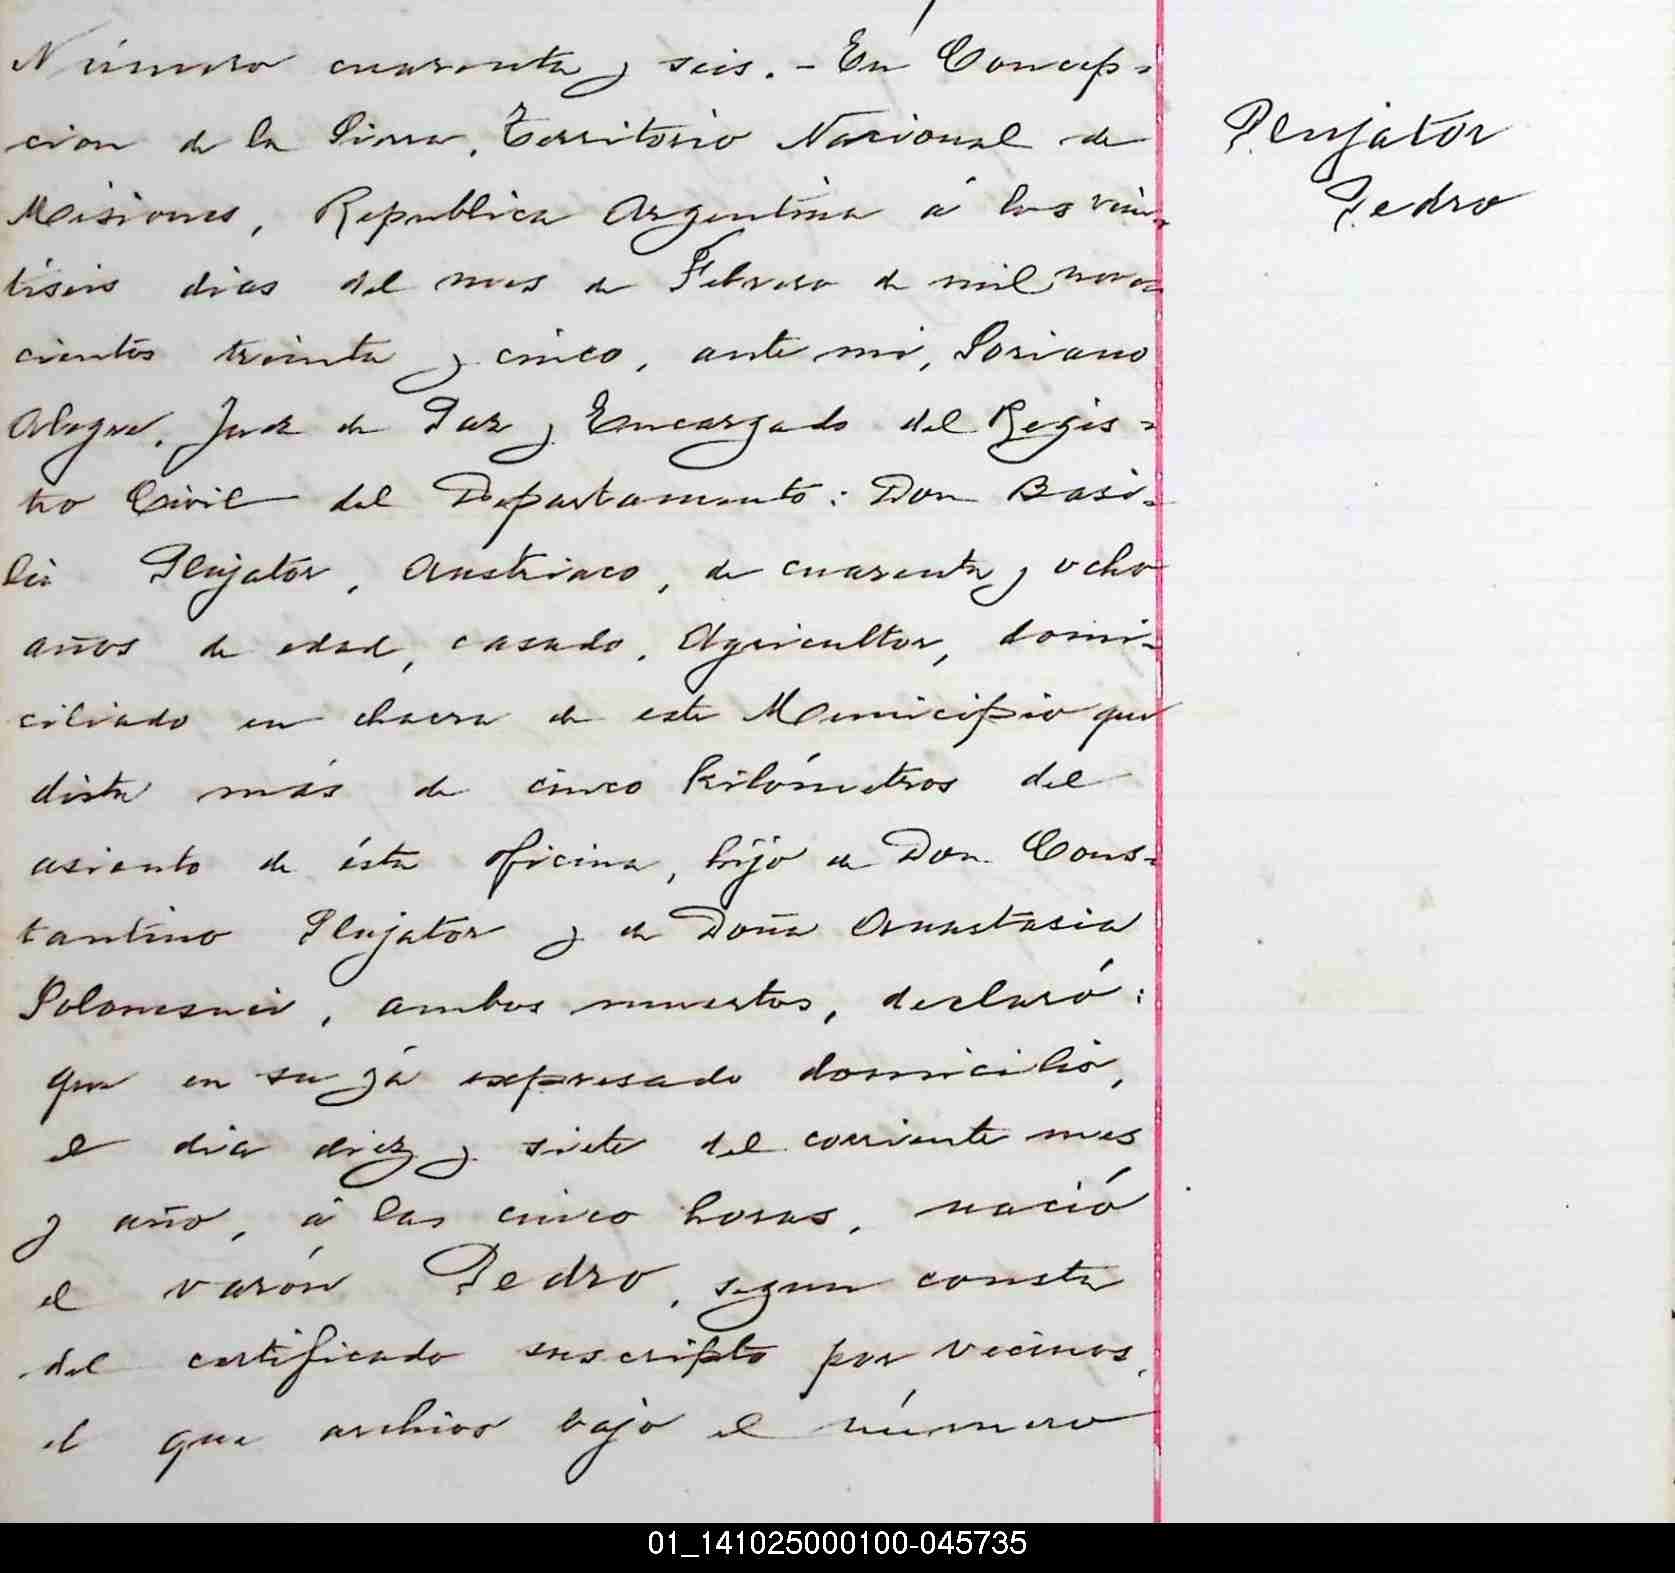 Número cuarenta y seis. - En Concep-
cion de la Sierra, Territorio Nacional de
Misiones, Republica Argentina á los vein-
tiseis dias del mes de Febrero de mil nove-
cientos treinta y cinco, ante mi, Soriano
Alegre, Juez de Paz y Encargado del Regis-
tro Civil del Departamento: Don Basi-
lio Plujator, Austriaco, de cuarenta y ocho
años de edad, casado, Agricultor, domi-
ciliado en chacra de este Municipio que
dista más de cinco kilómetros del
asiento de ésta oficina, hijo de Don Cons-
tantino Plujator y de Doña Anastasia
ambos muertos, declaró:
que en su yá expresado domicilio,
el dia diez y siete del corriente mes
y año, á las cinco horas, nació
el varón Pedro, segun consta
del certificado suscripto por vecinos,
el que archivo bajo el número
Plujator
Pedro
01_141025000100-045735